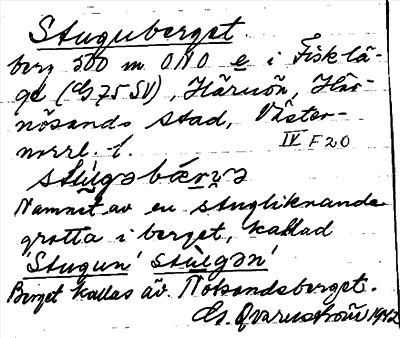 Stuguberget.
berg 500 m ONO e i Fisklä-
ge (G 75 SV), Härnön, Här-
nösands stad, Väster-
norrl. l.
IV F 20
stùgəbærjə
Namnet av en stugliknande
grotta i berget, kallad
'Stugun' stùgən'
Berget kallas äv. Rökandsberget.
G. Qvarnström 1942